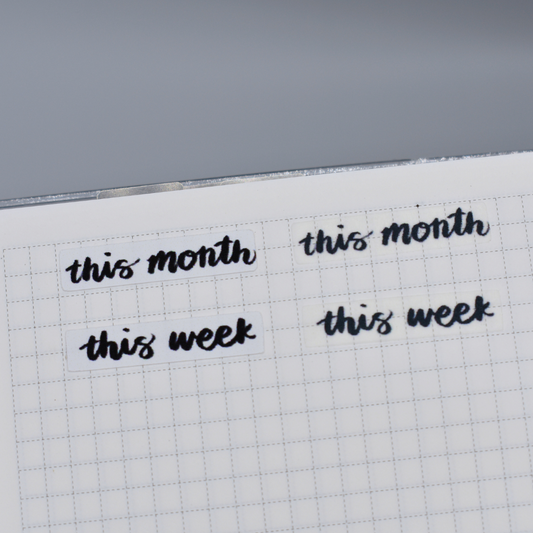 this month this month
this week this week